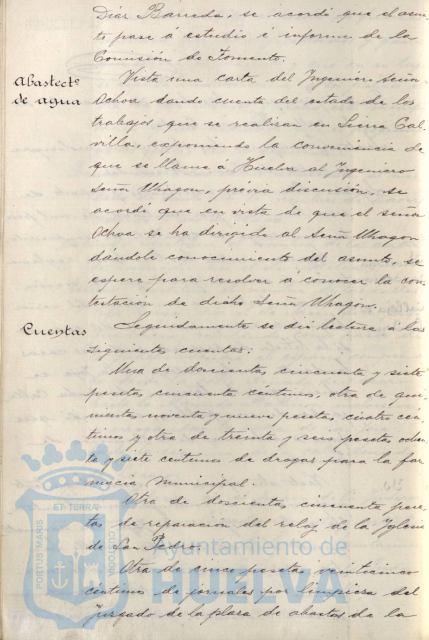 Diaz Barreda, se acordó que el asun-
to pase á estudio é informe de la
Comisión de Fomento.
Abastect.º de agua
Vista una carta del Ingeniero Señor
Ochoa dando cuenta del estado de los
trabajos que se realizan en Sierra Cal-
villa, exponiendo la conveniencia de
que se llame á Huelva al Ingeniero
Señor Uhagon, prévia discusión, se
acordó que en vista de que el señor
Ochoa se ha dirigido al Señor Uhagon
dándole conocimiento del asunto, se
espere para resolver á conocer la con-
testacion de dicho Señor Uhagon.
Cuentas
Seguidamente se dió lectura á las
siguientes cuentas:
Una de doscientas cincuenta y siete
pesetas cincuenta céntimos, otra de qui-
nientas noventa y nueve pesetas cuatro cén-
timos y otra de treinta y seis pesetas ochen-
ta y siete céntimos de drogas para la far-
macia municipal.
Otra de doscientas cincuenta pese-
tas de reparación del reloj de la Iglesia
de San Pedro.
Otra de cinco pesetas veinticinco
céntimos de jornales por limpieza del
Juzgado de la plaza de abastos de la
PORTUS MARIS
ET TERRÆ
CUSTODIO
Ayuntamiento de
HUELVA